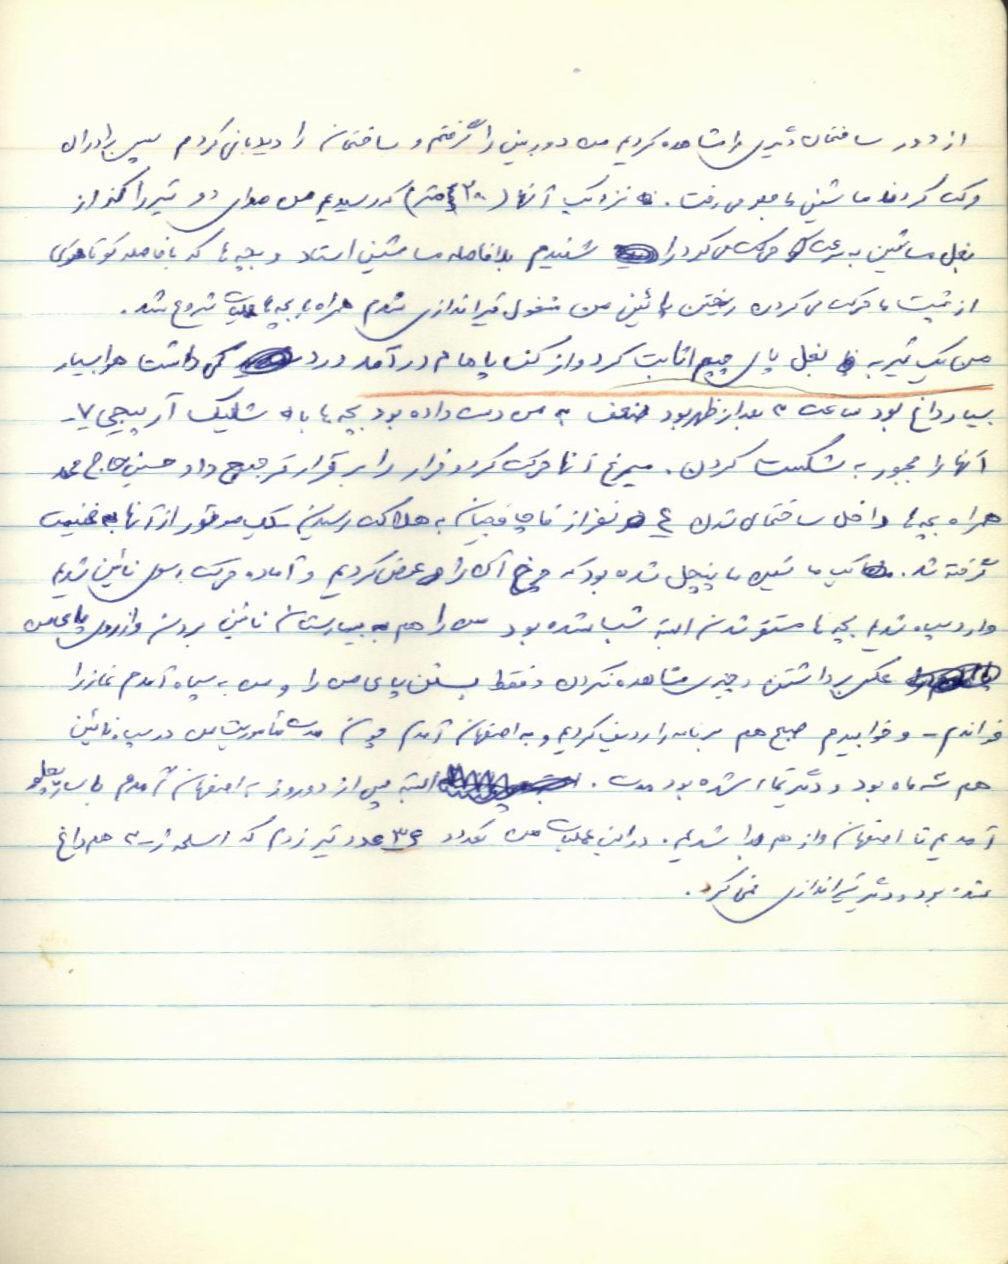 از دور ساختمان دیگری را مشاهده کردیم من دوربین را گرفتم و ساختمان را دیدبانی کردم سپس برادران
حرکت کردند ماشینی ما جلو می رفت. نزدیک آنها (۲۰ متر) که رسیدیم من صدای دو تیر را که از
بغل ماشین به سرعت حرکت می کرد را شنیدم بلافاصله ماشین ایستاد و بچه ها که با فاصله کوتاهی
از پشت ما حرکت می کردن ریختن پائین من مشغول تیراندازی شدم همراه با بچه ها عملیات شروع شد.
من یک تیر به بغل پای چپم اثابت کرد و از کف پاهام در آمد درد کمی داشت هوا بسیار
بسیار داغ بود ساعت ۳ بعد از ظهر بود ضعف به من دست داده بود بچه ها با شلیک آرپیجی ۷-
آنها را مجبور به شکست کردن. فرار را بر قرار ترجیح داد حسین حاج محمد
همراه بچه ها داخل ساختمان شدن ۴ نفر از قاچاقچیان به هلاکت رسیدن یک موتور از آنها به غنیمت
گرفته شد. یک ماشین ما پنچل شده بود که چرخ آن را عوض کردیم و آماده حرکت بسوی نائین شدیم
وارد سپاه شدیم بچه ها مستقر شدن البته شب شده بود من را هم به بیمارستان نائین بردن و از روی پای من
عکس برداشتن و چیزی مشاهده نکردن و فقط بستن پای من را و من به سپاه آمدم نماز را
خواندم - و خوابیدم صبح هم برنامه را ردیف کردیم و به اصفهان آمدم چون مدت مأموریت من در سپاه نائین
هم سه ماه بود و دیگر تمام شده بود مدت. البته پس از دو روز به اصفهان آمدم
آمدیم تا اصفهان و از هم جدا شدیم. در این عملیات من تعداد ۳۶ عدد تیر زدم که اسلحه ژ-۳ هم داغ
شده بود و دیگر تیراندازی نمی کرد.